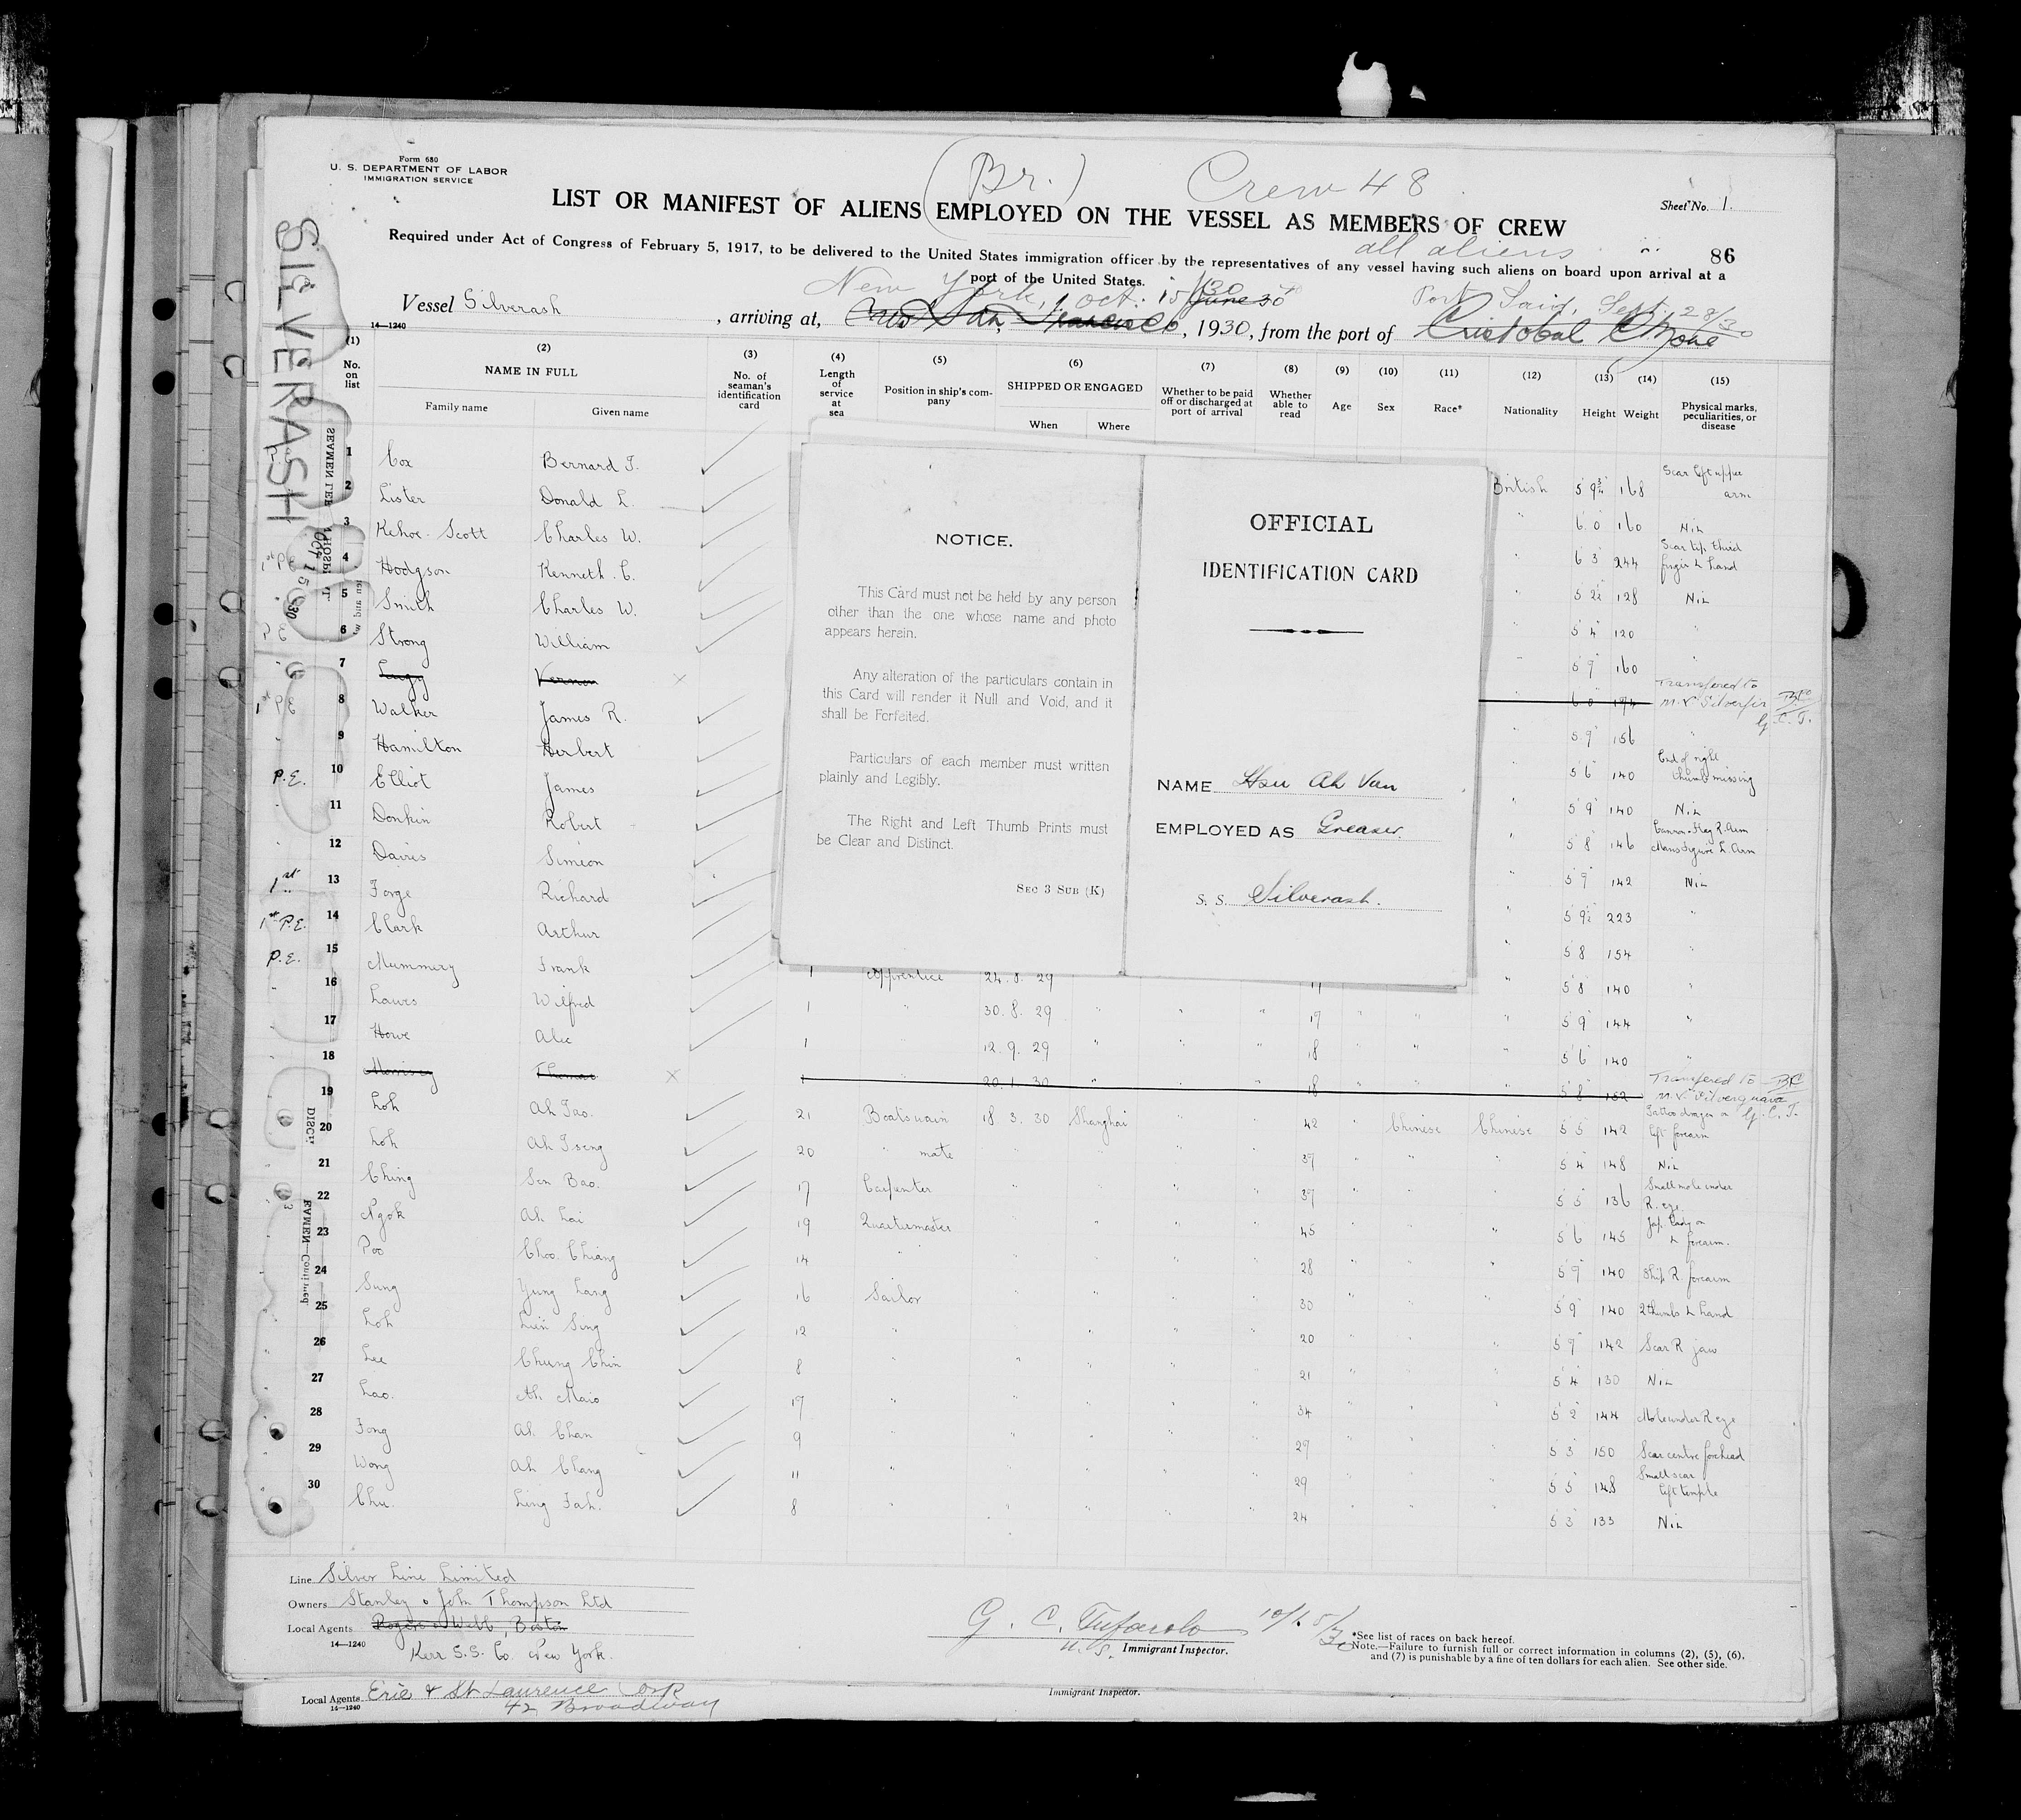 Form 680
U. S. DEPARTMENT OF LABOR
IMMIGRATION SERVICE
(Br.) Crew 48
Sheet No. 1.
LIST OR MANIFEST OF ALIENS EMPLOYED ON THE VESSEL AS MEMBERS OF CREW
all aliens
86
Required under Act of Congress of February 5, 1917, to be delivered to the United States immigration officer by the representatives of any vessel having such aliens on board upon arrival at a
port of the United States.
New York, Oct. 15/30 Port Said, Sept. 28/30
Vessel Silverash, arriving at, San Francisco, 1930, from the port of Cristobal C Zone
14—1240
SILVERASH
(1) (2) (3) (4) (5) (6) (7) (8) (9) (10) (11) (12) (13) (14) (15)
No. on list
NAME IN FULL
Family name Given name
No. of seaman's identification card
Length of service at sea
Position in ship's company
SHIPPED OR ENGAGED
When Where
Whether to be paid off or discharged at port of arrival
Whether able to read
Age Sex Race* Nationality Height Weight
Physical marks, peculiarities, or disease
1 Cox Bernard J. British 5 9¾ 168 Scar left upper arm
2 Lister Donald L. " 6 0 160 Nil
3 Kehoe-Scott Charles W. " 6 3 244 Scar tip third finger L hand
1st PE 4 Hodgson Kenneth C. " 5 2½ 128 Nil
5 Smith Charles W. 5 4 120 "
PE 6 Strong William 5 9 160 "
7 Vernon X 6 0 194 Transfered to M.V. Silverfir G.C.T.
1st PE 8 Walker James R. " 5 9 156 "
9 Hamilton Herbert " 5 6 140 End of right thumb missing
P.E. 10 Elliot James " 5 9 140 Nil
11 Donkin Robert " 5 8 146
12 Davies Simeon " 5 9 142 Nil
1st 13 Forge Richard " 5 9½ 223 "
1st P.E. 14 Clark Arthur " 5 8 154 "
P.E. 15 Mummery Frank 1 Apprentice 24. 8. 29 " 5 8 140 "
16 Lawes Wilfred 1 " 30. 8. 29 " " " 19 " " " 5 9 144 "
17 Howe Alec 1 12. 9. 29 " " " 18 " " " 5 6 140 "
18 Morrisey Thomas X 1 " 20. 1. 30 " " " 18 " " " 5 8 152 Transfered to M.V. Silverguava G.C.T.
19 Loh Ah Tao. 21 Boatswain 18. 3. 30 Shanghai " " 42 " Chinese Chinese 5 5 142 Tattoo dragon on left forearm
20 Loh Ah Tseng 20 " mate " " " " 39 " " " 5 4 148 Nil
21 Ching Sen Bao. 17 Carpenter " " " " 39 " " " 5 5 136 Small mole under R. eye.
22 Ngok Ah Lai 19 Quartermaster " " " 45 " " " 5 6 145 Jap. lady on L forearm.
23 Poo Choo Chiang 14 " " " " 28 " " " 5 9 140 Ship R. forearm
24 Sung Yung Lang 16 Sailor " " " " 30 " " " 5 9 140 2 thumbs L hand
25 Loh Lien Sing 12 " " " " 20 " " " 5 9 142 Scar R jaw
26 Lee Chung Chin 8 " " " " " 21 " " " 5 4 130 Nil
27 Lao. Ah Maio 19 " " " " " 34 " " " 5 2 144 Mole under R eye
28 Fong Ah Chan 9 " " " " " 29 " " " 5 3 150 Scar centre forehead
29 Wong Ah Chang 11 " " " " " 29 " " " 5 5 148 Small scar left temple
30 Chu. Ling Fah. 8 " " " " " 24 " " " 5 3 133 Nil
NOTICE.
This Card must not be held by any person
other than the one whose name and photo
appears herein.
Any alteration of the particulars contain in
this Card will render it Null and Void, and it
shall be Forfeited.
Particulars of each member must written
plainly and Legibly.
The Right and Left Thumb Prints must
be Clear and Distinct.
SEC 3 SUB (K)
OFFICIAL
IDENTIFICATION CARD
NAME Hsu Ah Van
EMPLOYED AS Greaser.
S. S. Silverash.
Line Silver Line Limited
Owners Stanley & John Thompson Ltd
Local Agents Rogers & Webb, Boston
14—1240
Kerr S.S. Co. New York.
G. C. Tufarolo 10/15/30
U.S. Immigrant Inspector.
*See list of races on back hereof.
Note.—Failure to furnish full or correct information in columns (2), (5), (6),
and (7) is punishable by a fine of ten dollars for each alien. See other side.
Local Agents Erie & St Laurence Corp
14—1240
42 Broadway
Immigrant Inspector.